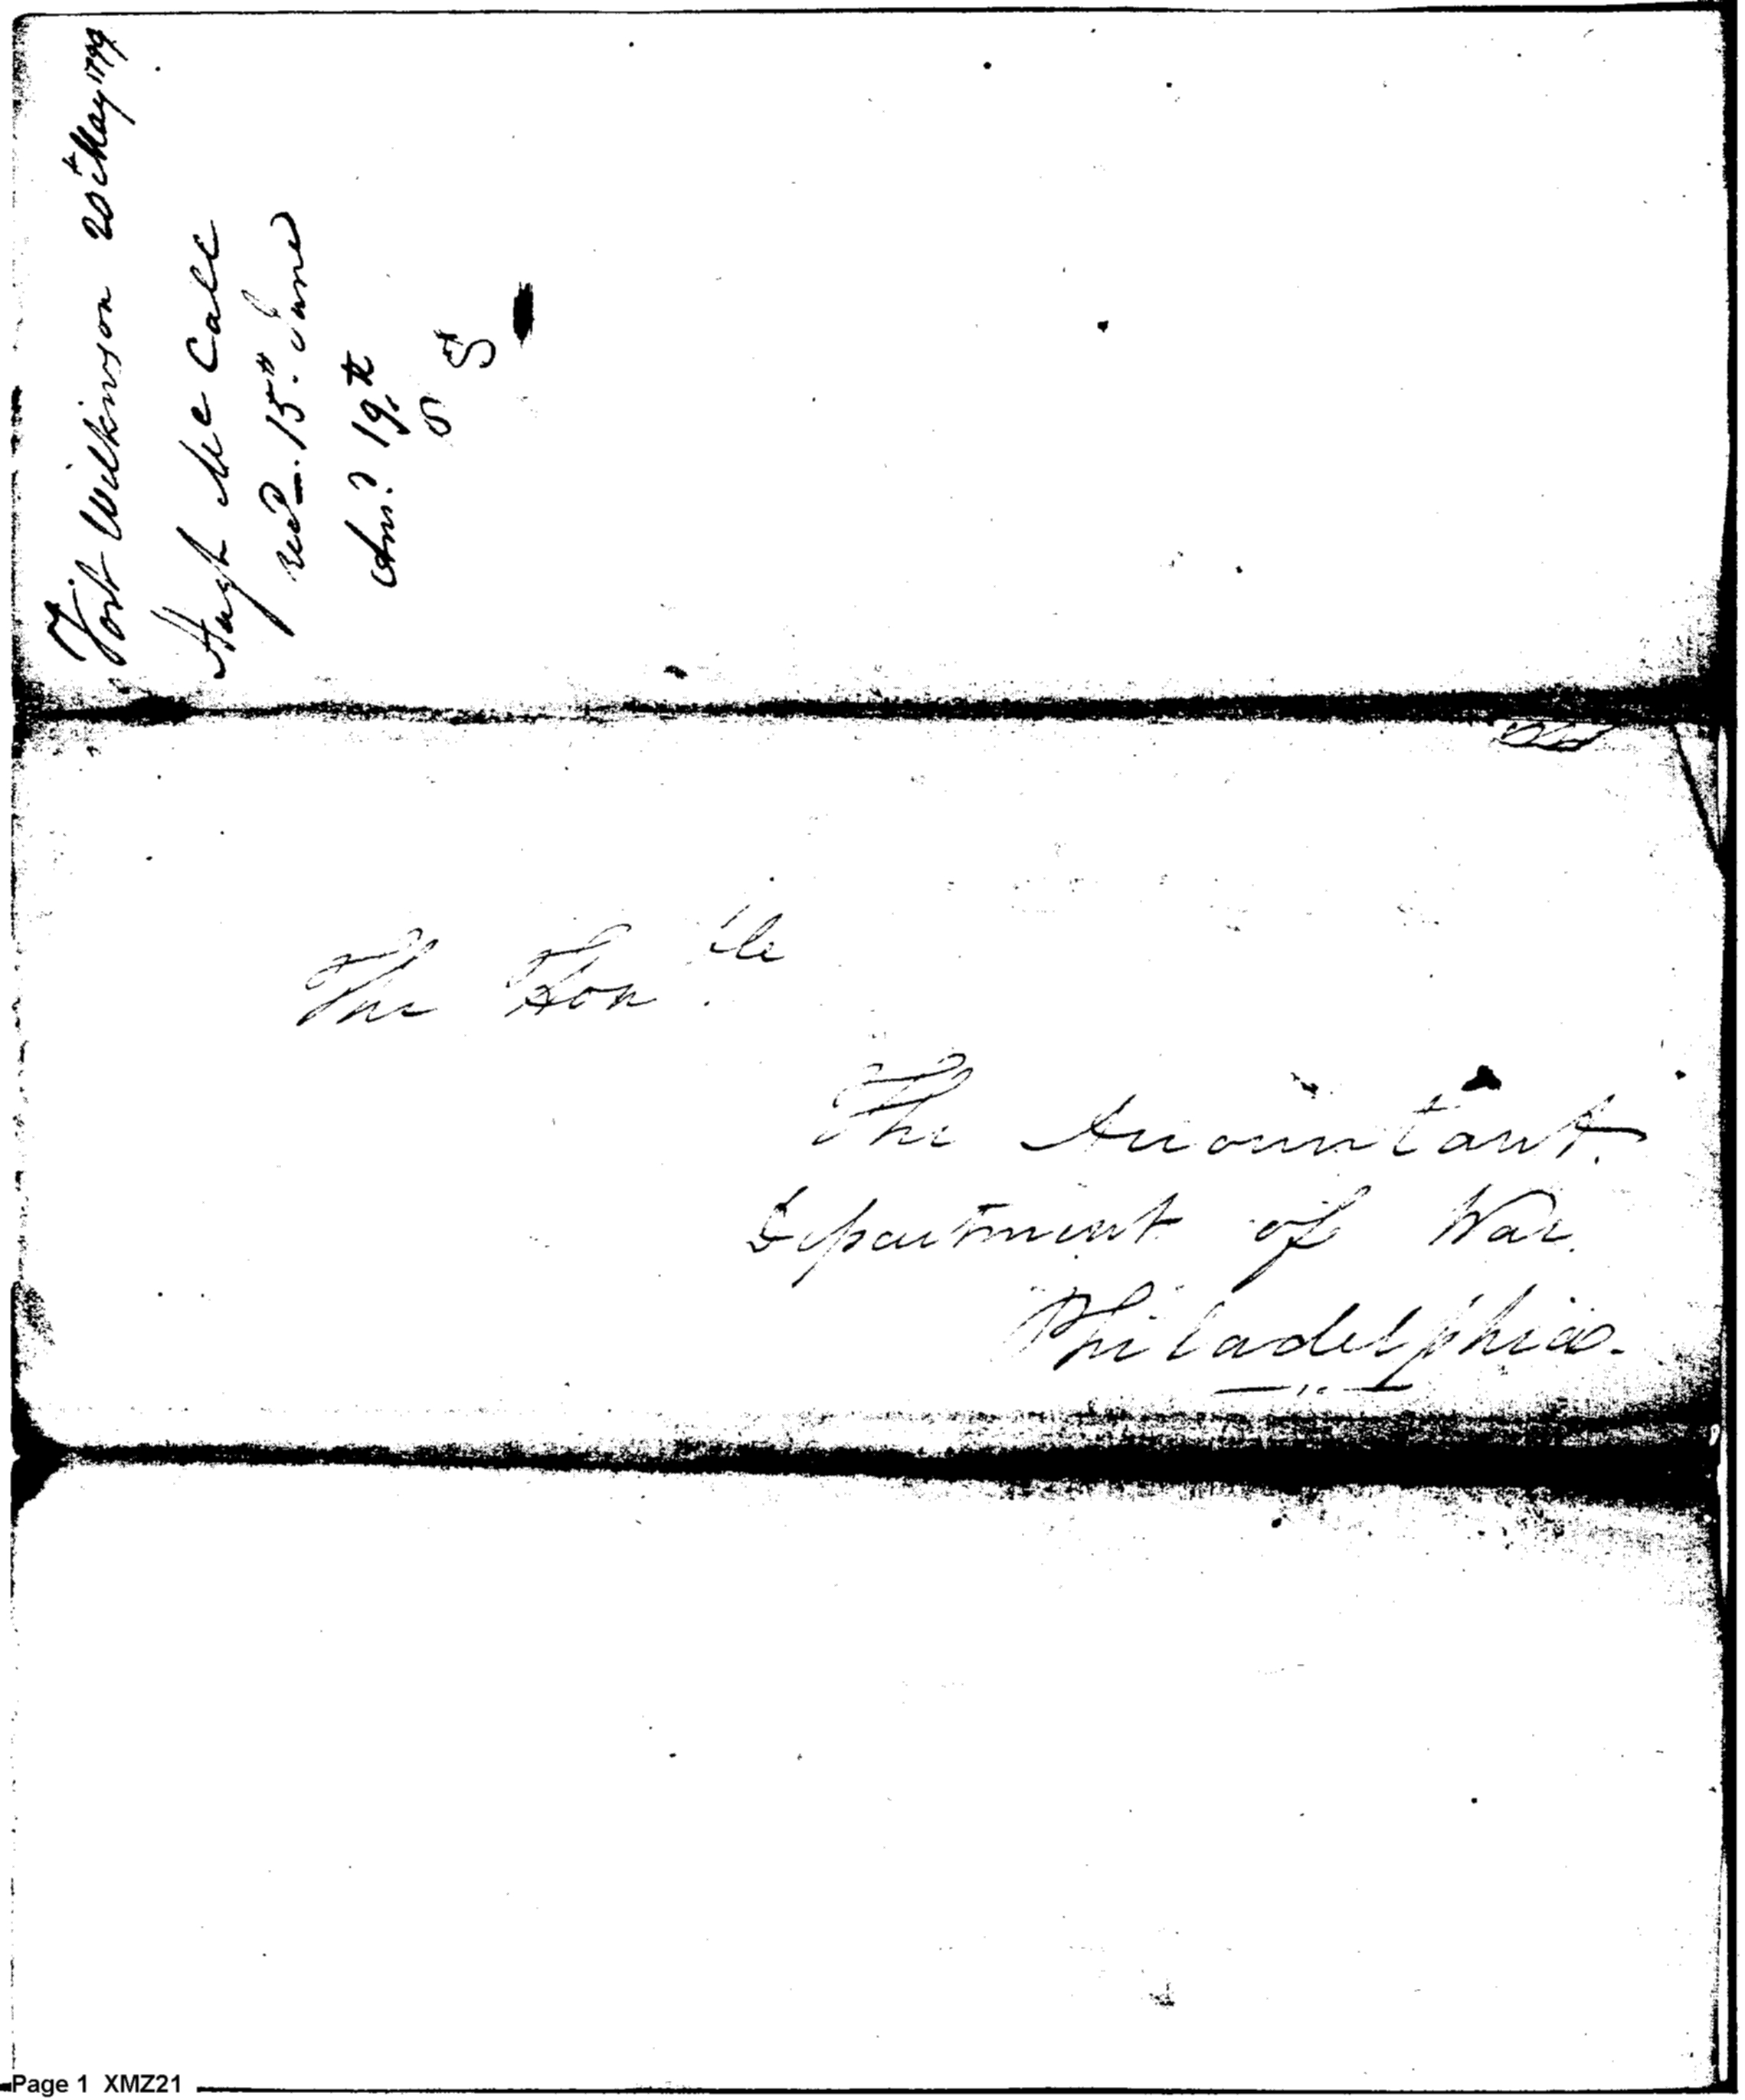 Fort Wilkinson 20th May 1799
Hugh McCall
recd. 15th. June
Ansd. 19th
The Honble.
The Accountant.
Department of War.
Philadelphia.
Page 1 XMZ21